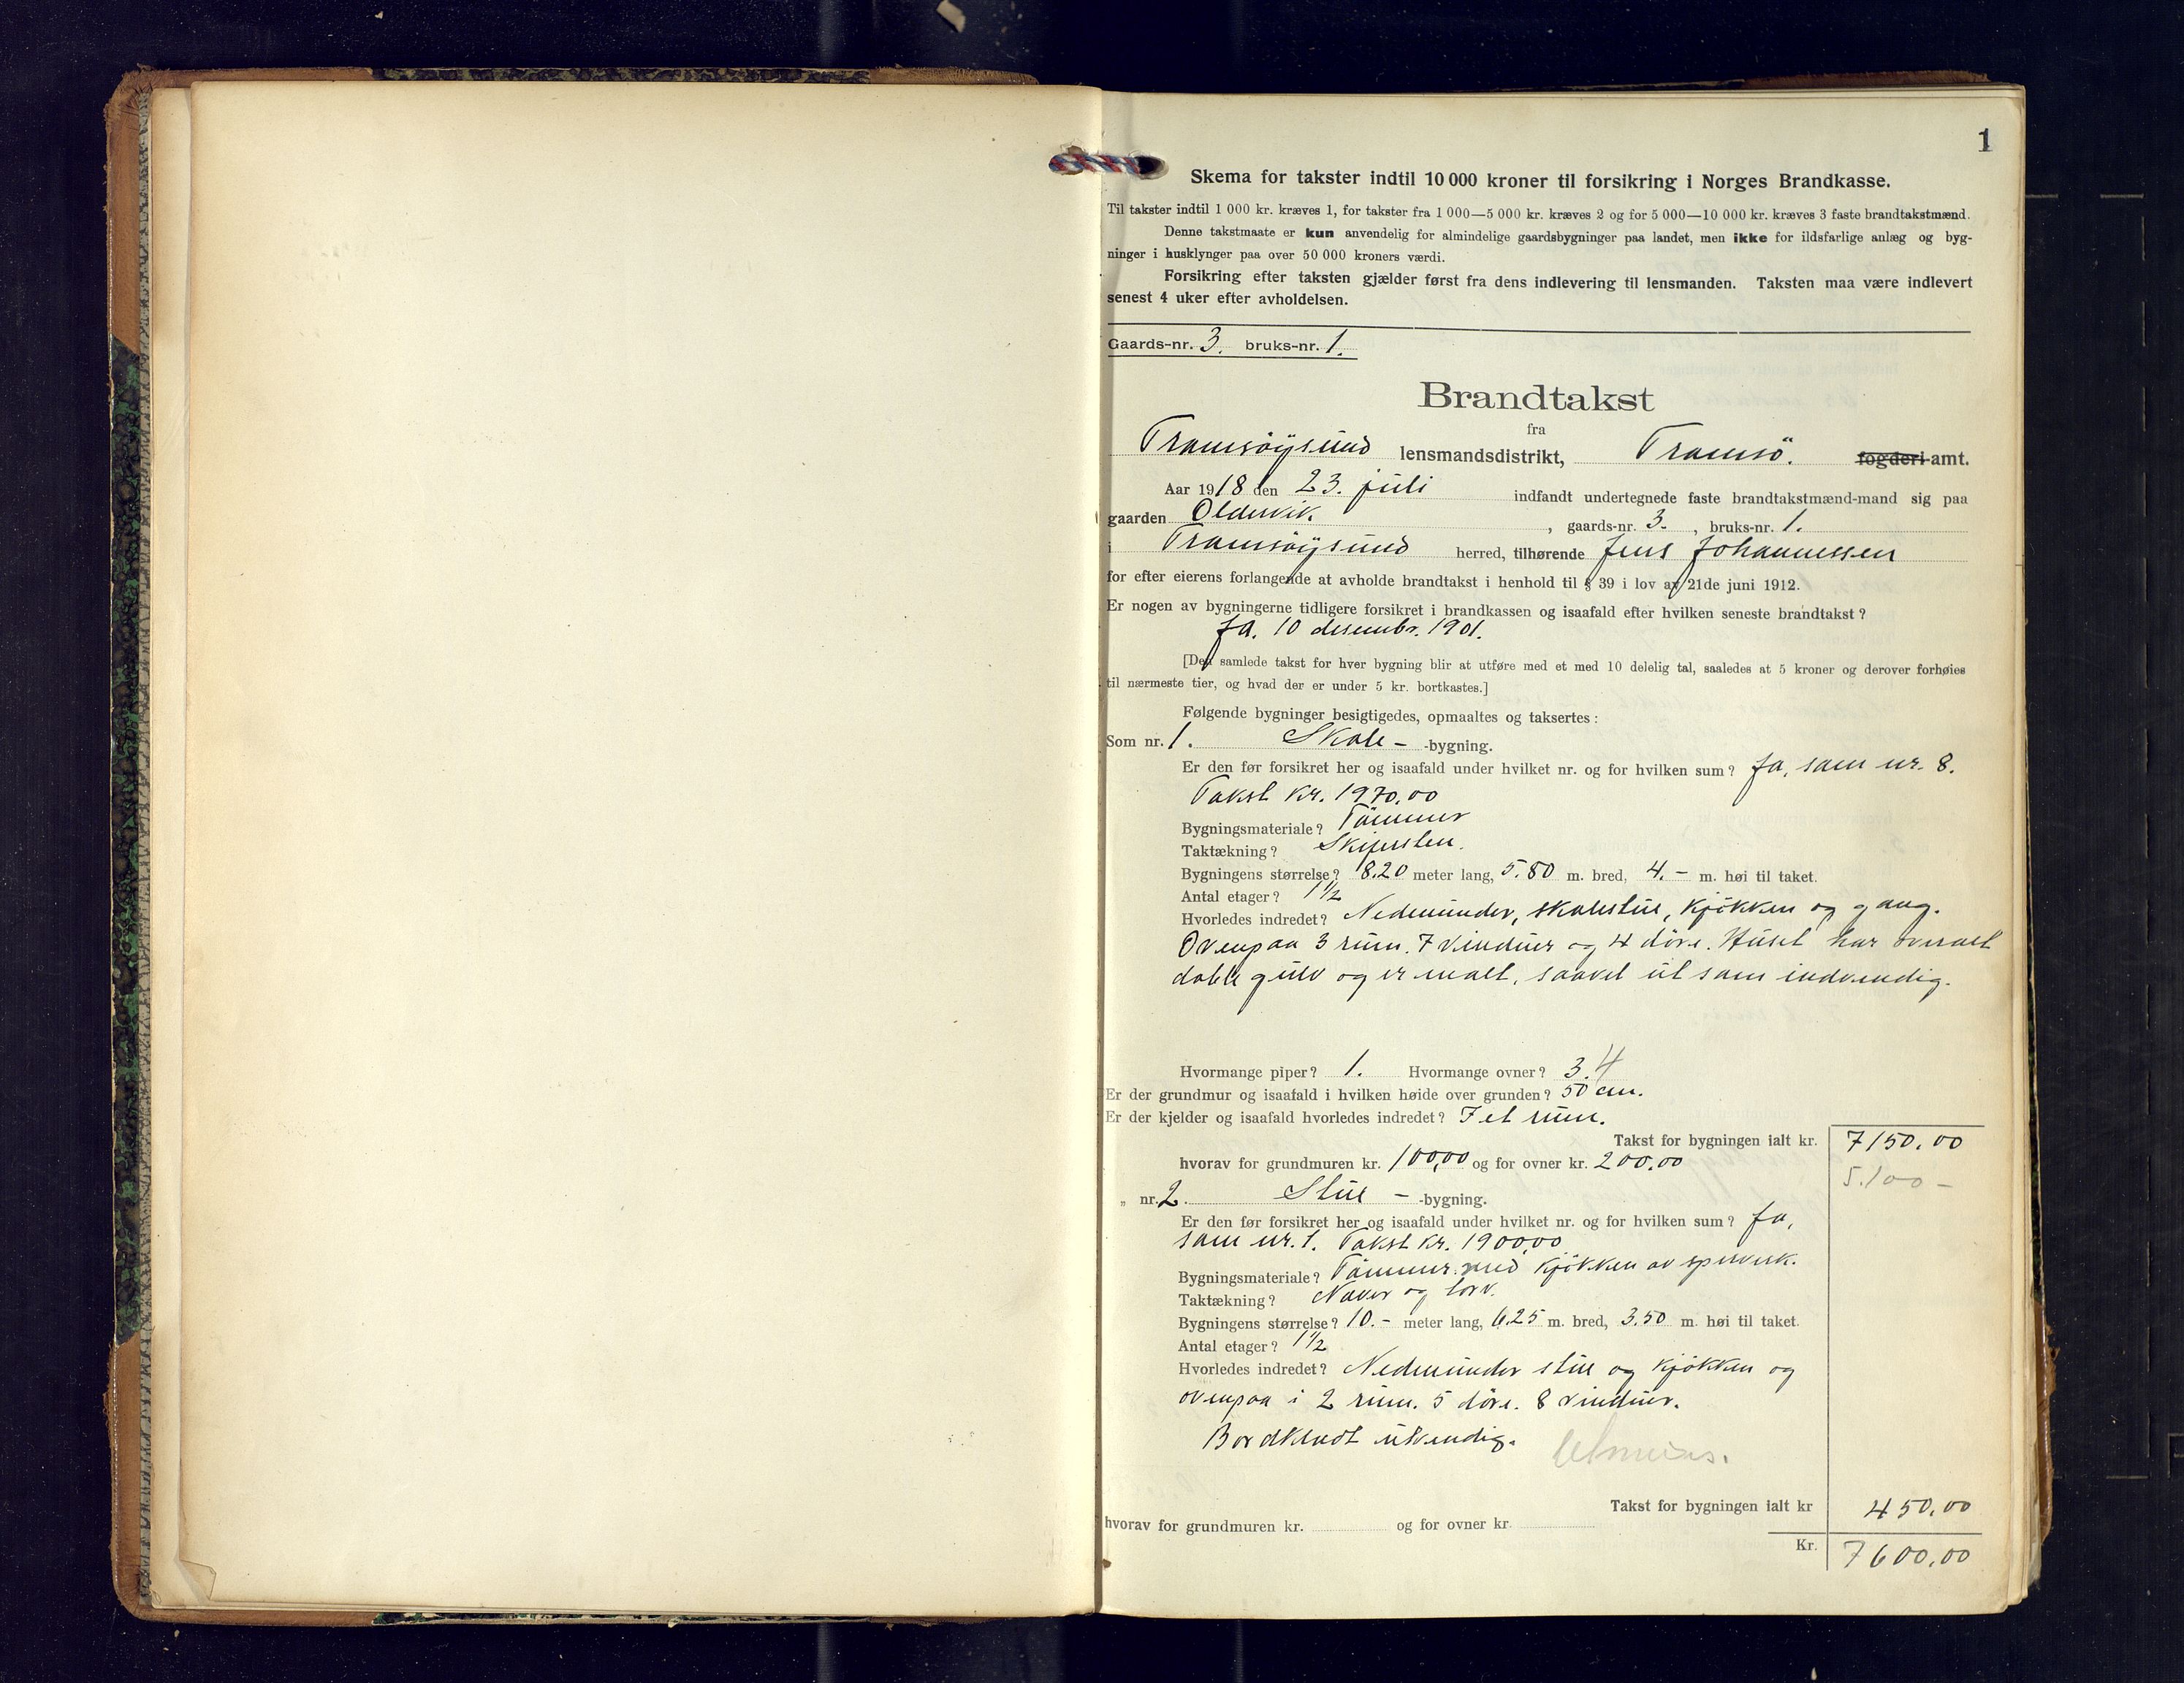 1
Skema for takster indtil 10 000 kroner til forsikring i Norges Brandkasse.
Til takster indtil 1 000 kr. kræves 1, for takster fra 1 000—5 000 kr. kræves 2 og for 5 000—10 000 kr. kræves 3 faste brandtakstmænd.
Denne takstmaate er kun anvendelig for almindelige gaardsbygninger paa landet, men ikke for ildsfarlige anlæg og byg-
ninger i husklynger paa over 50 000 kroners værdi.
Forsikring efter taksten gjælder først fra dens indlevering til lensmanden. Taksten maa være indlevert
senest 4 uker efter avholdelsen.
Gaards-nr. 3. bruks-nr. 1.
Brandtakst
fra
Tromsøysund lensmandsdistrikt, Tromsö. fogderi amt.
Aar 1918 den 23. juli indfandt undertegnede faste brandtakstmænd-mand sig paa
gaarden Oldervik. , gaards-nr. 3. , bruks-nr. 1.
i Tromsøysund herred, tilhørende Jens Johannessen
for efter eierens forlangende at avholde brandtakst i henhold til § 39 i lov av 21de juni 1912.
Er nogen av bygningerne tidligere forsikret i brandkassen og isaafald efter hvilken seneste brandtakst?
Ja. 10 desembr. 1901.
[Den samlede takst for hver bygning blir at utføre med et med 10 delelig tal, saaledes at 5 kroner og derover forhøies
til nærmeste tier, og hvad der er under 5 kr. bortkastes.]
Følgende bygninger besigtigedes, opmaaltes og taksertes:
Som nr. 1. Skole- -bygning.
Er den før forsikret her og isaafald under hvilket nr. og for hvilken sum? Ja, som nr. 8.
Takst kr. 1970.00
Bygningsmateriale? Tömmer
Taktækning? Skifersten.
Bygningens størrelse? 8.20 meter lang, 5.80 m. bred, 4.- m. høi til taket.
Antal etager? 1 1/2
Hvorledes indredet? Nedenunder, skolestue, kjökken og gang.
Ovenpaa 3 rum. 7 vinduer og 4 döre. Huset har overalt
doble gulv og er malt, saavel ut som indvendig.
Hvormange piper? 1. Hvormange ovner? 3. 4
Er der grundmur og isaafald i hvilken høide over grunden? 50 cm.
Er der kjelder og isaafald hvorledes indredet? I et rum.
Takst for bygningen ialt kr. 7150.00
hvorav for grundmuren kr. 100,00 og for ovner kr. 200.00
5.100 -
„ nr. 2. Stue - -bygning.
Er den før forsikret her og isaafald under hvilket nr. og for hvilken sum? Ja,
som nr. 1. Takst kr. 1900,00
Bygningsmateriale? Tömmer med kjökken av sperverk.
Taktækning? Næver og torv.
Bygningens størrelse? 10.- meter lang, 6.25 m. bred, 3.50 m. høi til taket.
Antal etager? 1 1/2
Hvorledes indredet? Nedenunder stue og kjökken og
ovenpaa i 2 rum. 5 döre. 8 vinduer.
Bordklædt utvendig.
Takst for bygningen ialt kr 450.00
hvorav for grundmuren kr. og for ovner kr.
Kr. 7600.00